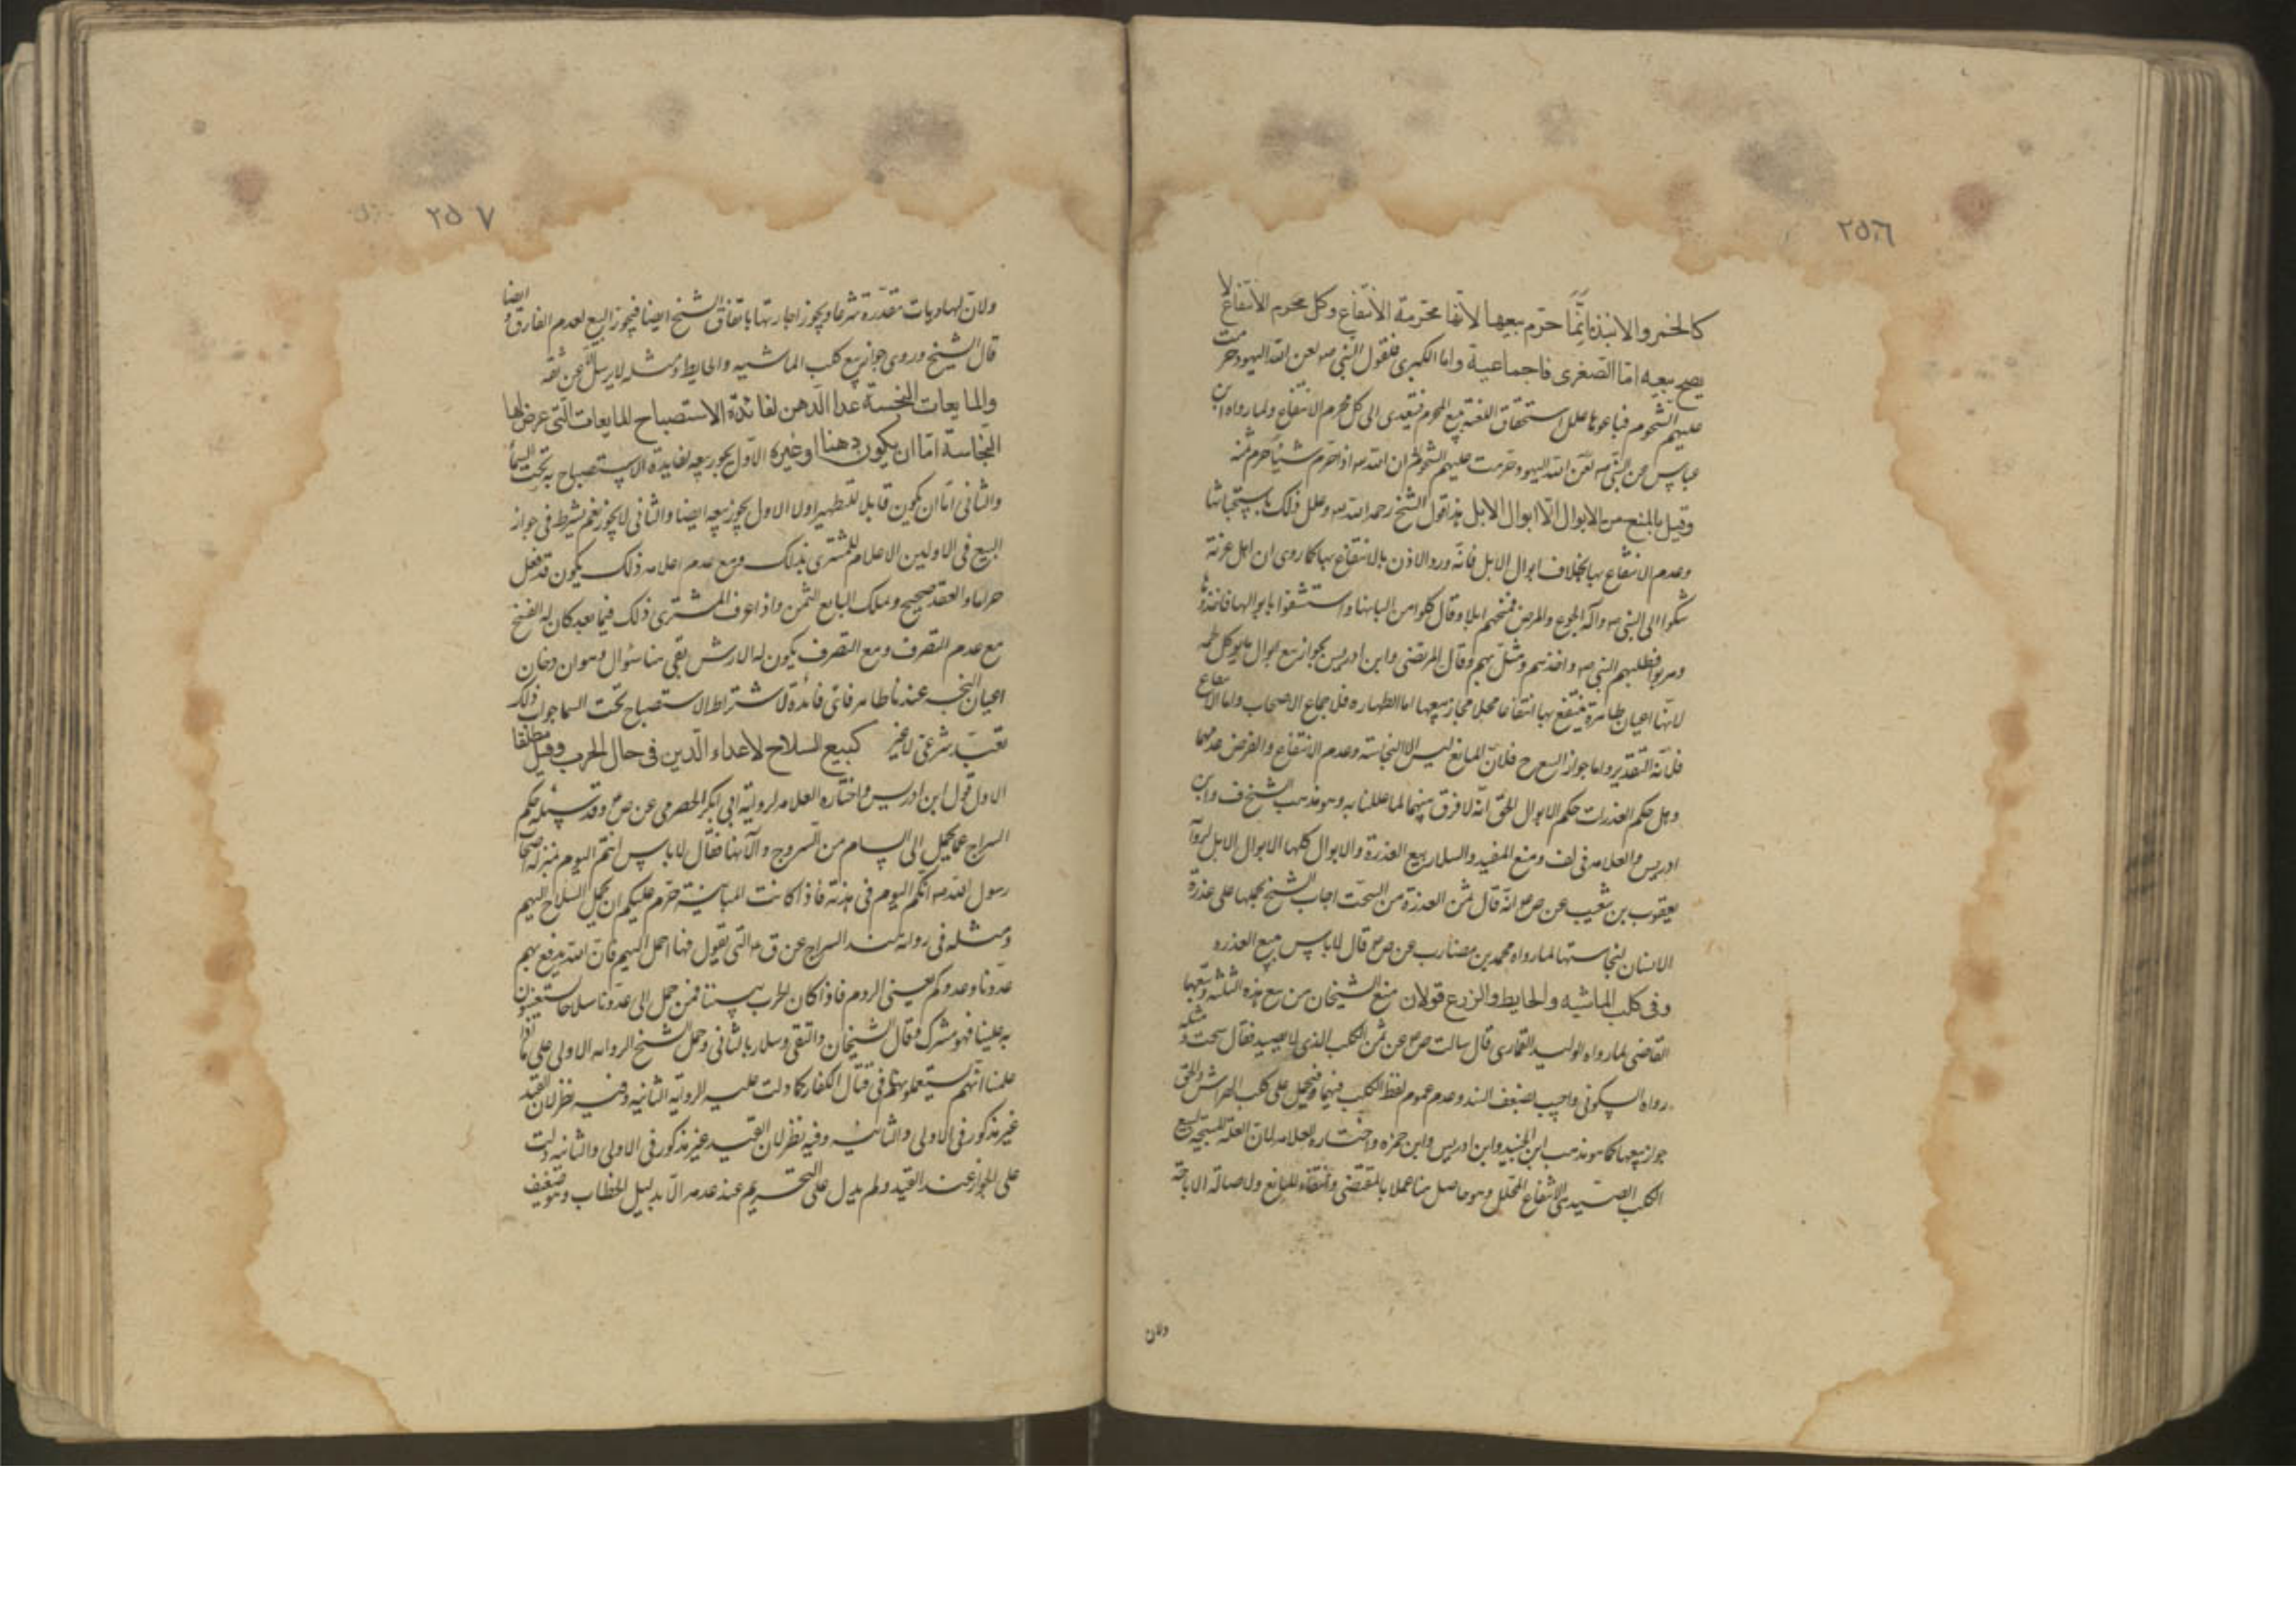 ٢٥٦
كالخمر والانبذة انما حرم بيعها لانها محرمة الانتفاع وكل محرم الانتفاع لا
يصح بيعه اما الصغرى فاجماعية واما الكبرى فلقول النبي صه لعن الله اليهود حرمت
عليهم الشحوم فباعوها علل استحقاق اللعنة ببيع المحرم فيتعدى الى كل محرم الانتفاع ولما رواه ابن
عباس عن النبي صه لعن الله اليهود حرمت عليهم الشحوم ان الله اذا حرم شيئا حرم ثمنه
وقيل بالمنع من الابوال الا ابوال الابل هذا قول الشيخ رحمه الله وعلل ذلك باستخباثها
وعدم الانتفاع بها بخلاف ابوال الابل فانه ورد الاذن بالانتفاع بها كما روى ان اهل عرنة
شكوا الى النبي صه وآله الجوع والمرض فمنحهم ابلا وقال كلوا من البانها واستشفوا بابوالها فاخذوها
وهربوا فطلبهم النبي صه واخذهم ومثل بهم وقال المرتضى وابن ادريس بجواز بيع ابوال ما يوكل لحمه
لانها اعيان طاهرة ينتفع بها انتفاعا محللا فجاز بيعها اما الطهارة فلاجماع الاصحاب واما الانتفاع
فلانه التقدير واما جواز البيع ح فلان المانع ليس الا النجاسة وعدم الانتفاع والفرض عدمهما
وهل حكم العذرات حكم الابوال الحق انه لا فرق بينهما لما عللنا به وهو مذهب الشيخ ف وابن
ادريس والعلامة في لف ومنع المفيد والسلار بيع العذرة والابوال كلها الا بوال الابل لرواية
يعقوب بن شعيب عن ص انه قال ثمن العذرة من السحت اجاب الشيخ بحملها على عذرة
الانسان لنجاستها لما رواه محمد بن مضارب عن ص قال لا باس ببيع العذره
وفى كلب الماشيه والحايط والزرع قولان منع الشيخان من بيع هذه الثلثة وتبعهما
القاضى لما رواه الوليد العمارى قال سالت ص عن ثمن الكلب الذى لا يصيد فقال سحت ومثله
رواه السكونى واجيب بضعف السند وعدم عموم لفظ الكلب فيهما فيحمل على كلب الهراش والحق
جواز بيعها كما هو مذهب ابن الجنيد وابن ادريس وابن حمزه واختاره العلامه لان العلة المبيحة لبيع
الكلب الصيد هى الانتفاع المحلل وهو حاصل هنا عملا بالمقتضى وانتفاء المانع ولاصالة الاباحة
ولان
٢٥٧
ولان لها ديات مقدرة شرعا ويجوز اجارتها باتفاق الشيخ ايضا فيجوز البيع لعدم الفارق وايضا
قال الشيخ وروى جواز بيع كلب الماشيه والحايط ومثله لا يرسل الا عن ثقه
والمايعات النجسة عدا الدهن لفائدة الاستصباح المايعات التى عرض لها
النجاسة اما ان يكون دهنا او غيره الاول يجوز بيعه لفايدة الاستصباح به تحت السماء
والثانى اما ان يكون قابلا للتطهير اولا الاول يجوز بيعه ايضا والثانى لا يجوز نعم يشرط فى جواز
البيع فى الاولين الاعلام للمشترى بذلك ومع عدم اعلامه ذلك يكون قد فعل
حراما والعقد صحيح ويملك البايع الثمن واذا عرف المشترى ذلك فيما بعد كان له الفسخ
مع عدم التصرف ومع التصرف يكون له الارش بقى هنا سؤال وهو ان دخان
اعيان النجسه عندنا طاهر فاى فائدة لاشتراط الاستصباح تحت السما جوابه ذلك
تعبد شرعى لا غير كبيع السلاح لاعداء الدين فى حال الحرب وقيل مطلقا
الاول قول ابن ادريس واختاره العلامه لرواية ابى بكر الحضرمى عن ص وقد سئله حكم
السراج عما يحمل الى الشام من السروج واداتها فقال لا باس انتم اليوم بمنزلة اصحاب
رسول الله صه انكم اليوم فى هدنة فاذا كانت المباينة حرم عليكم ان تحمل السلاح اليهم
ومثله فى رواية هند السراج عن ق ع التى يقول فيها احمل اليهم فان الله يدفع بهم
عدونا وعدوكم يعنى الروم فاذا كان الحرب بيننا فمن حمل الى عدونا سلاحا يستعينون
به علينا فهو مشرك وقال الشيخان والتقى وسلار بالثانى وحمل الشيخ الروايه الاولى على ما اذا
علمنا انهم يستعملونها فى قتال الكفار كما دلت عليه الرواية الثانيه وفيه نظر لان القيد
غير مذكور فى الاولى والثانيه وفيه نظر لان القيد غير مذكور فى الاولى والثانيه دلت
على الجواز عند القيد ولم يدل على التحريم عند عدمه الا بدليل الخطاب وهو ضعيف